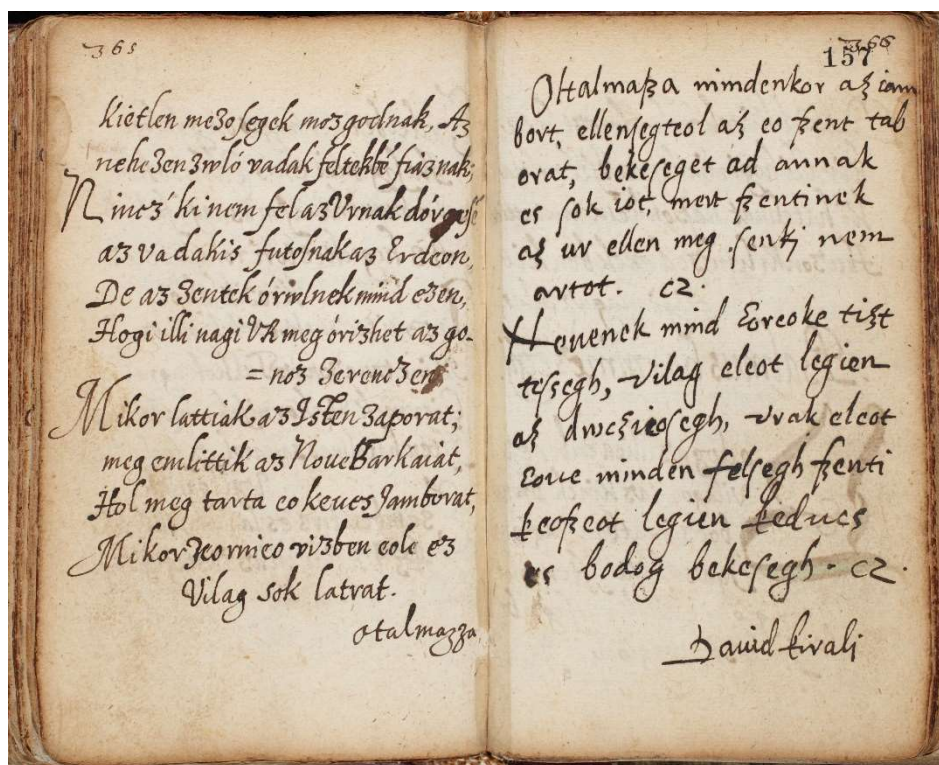 365
Kietlen mezosegek mozgodnak, Az
nehezen zwlő vadak feltekbé fiaznak;
Nincz' ki nem fel az Vrnak dórgesé
az vadakis futosnak az Erdeon,
De az zentek órwlnek mind ezen,
Hogi illi nagi VR meg órizhet az go-
= noz zerenczen
Mikor lattiak az Isten zaporat;
meg emlittik az Noue Barkaiat,
Hol meg tarta eo keues Jamborat,
Mikor
vizben eole ez
Vilag sok latrat.
otalmazza
366
157
Oltalmaßa mindenkor az iam
bort, ellensegteol az eo ßent tab
orat, bekeseget ad annak
es sok iot, mert ßentinek
az ur ellen meg senki nem
artot. cz.
Heuenek mind Eoreoke tizt
tessegh, vilag eleot legien
az dwczieosegh, vrak eleot
Eoue minden felsegh ßenti
keoßeot legien kedues
es bodog bekesegh. cz.
Dauid kirali